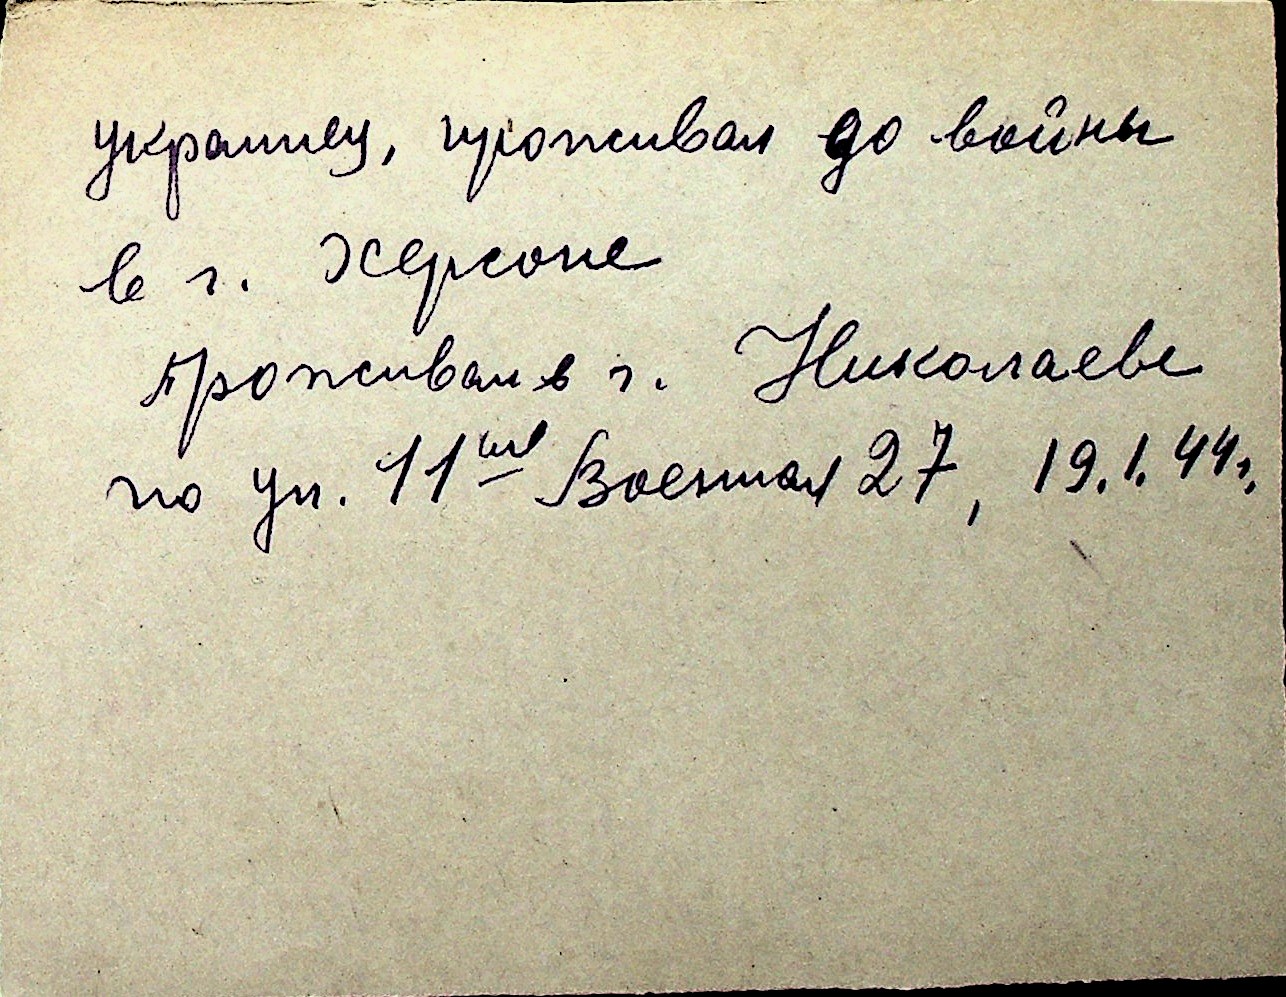 украинец, проживал до войны
в г. Херсоне
проживал в г. Николаеве
по ул. 11ая Военная 27, 19.1.44г.